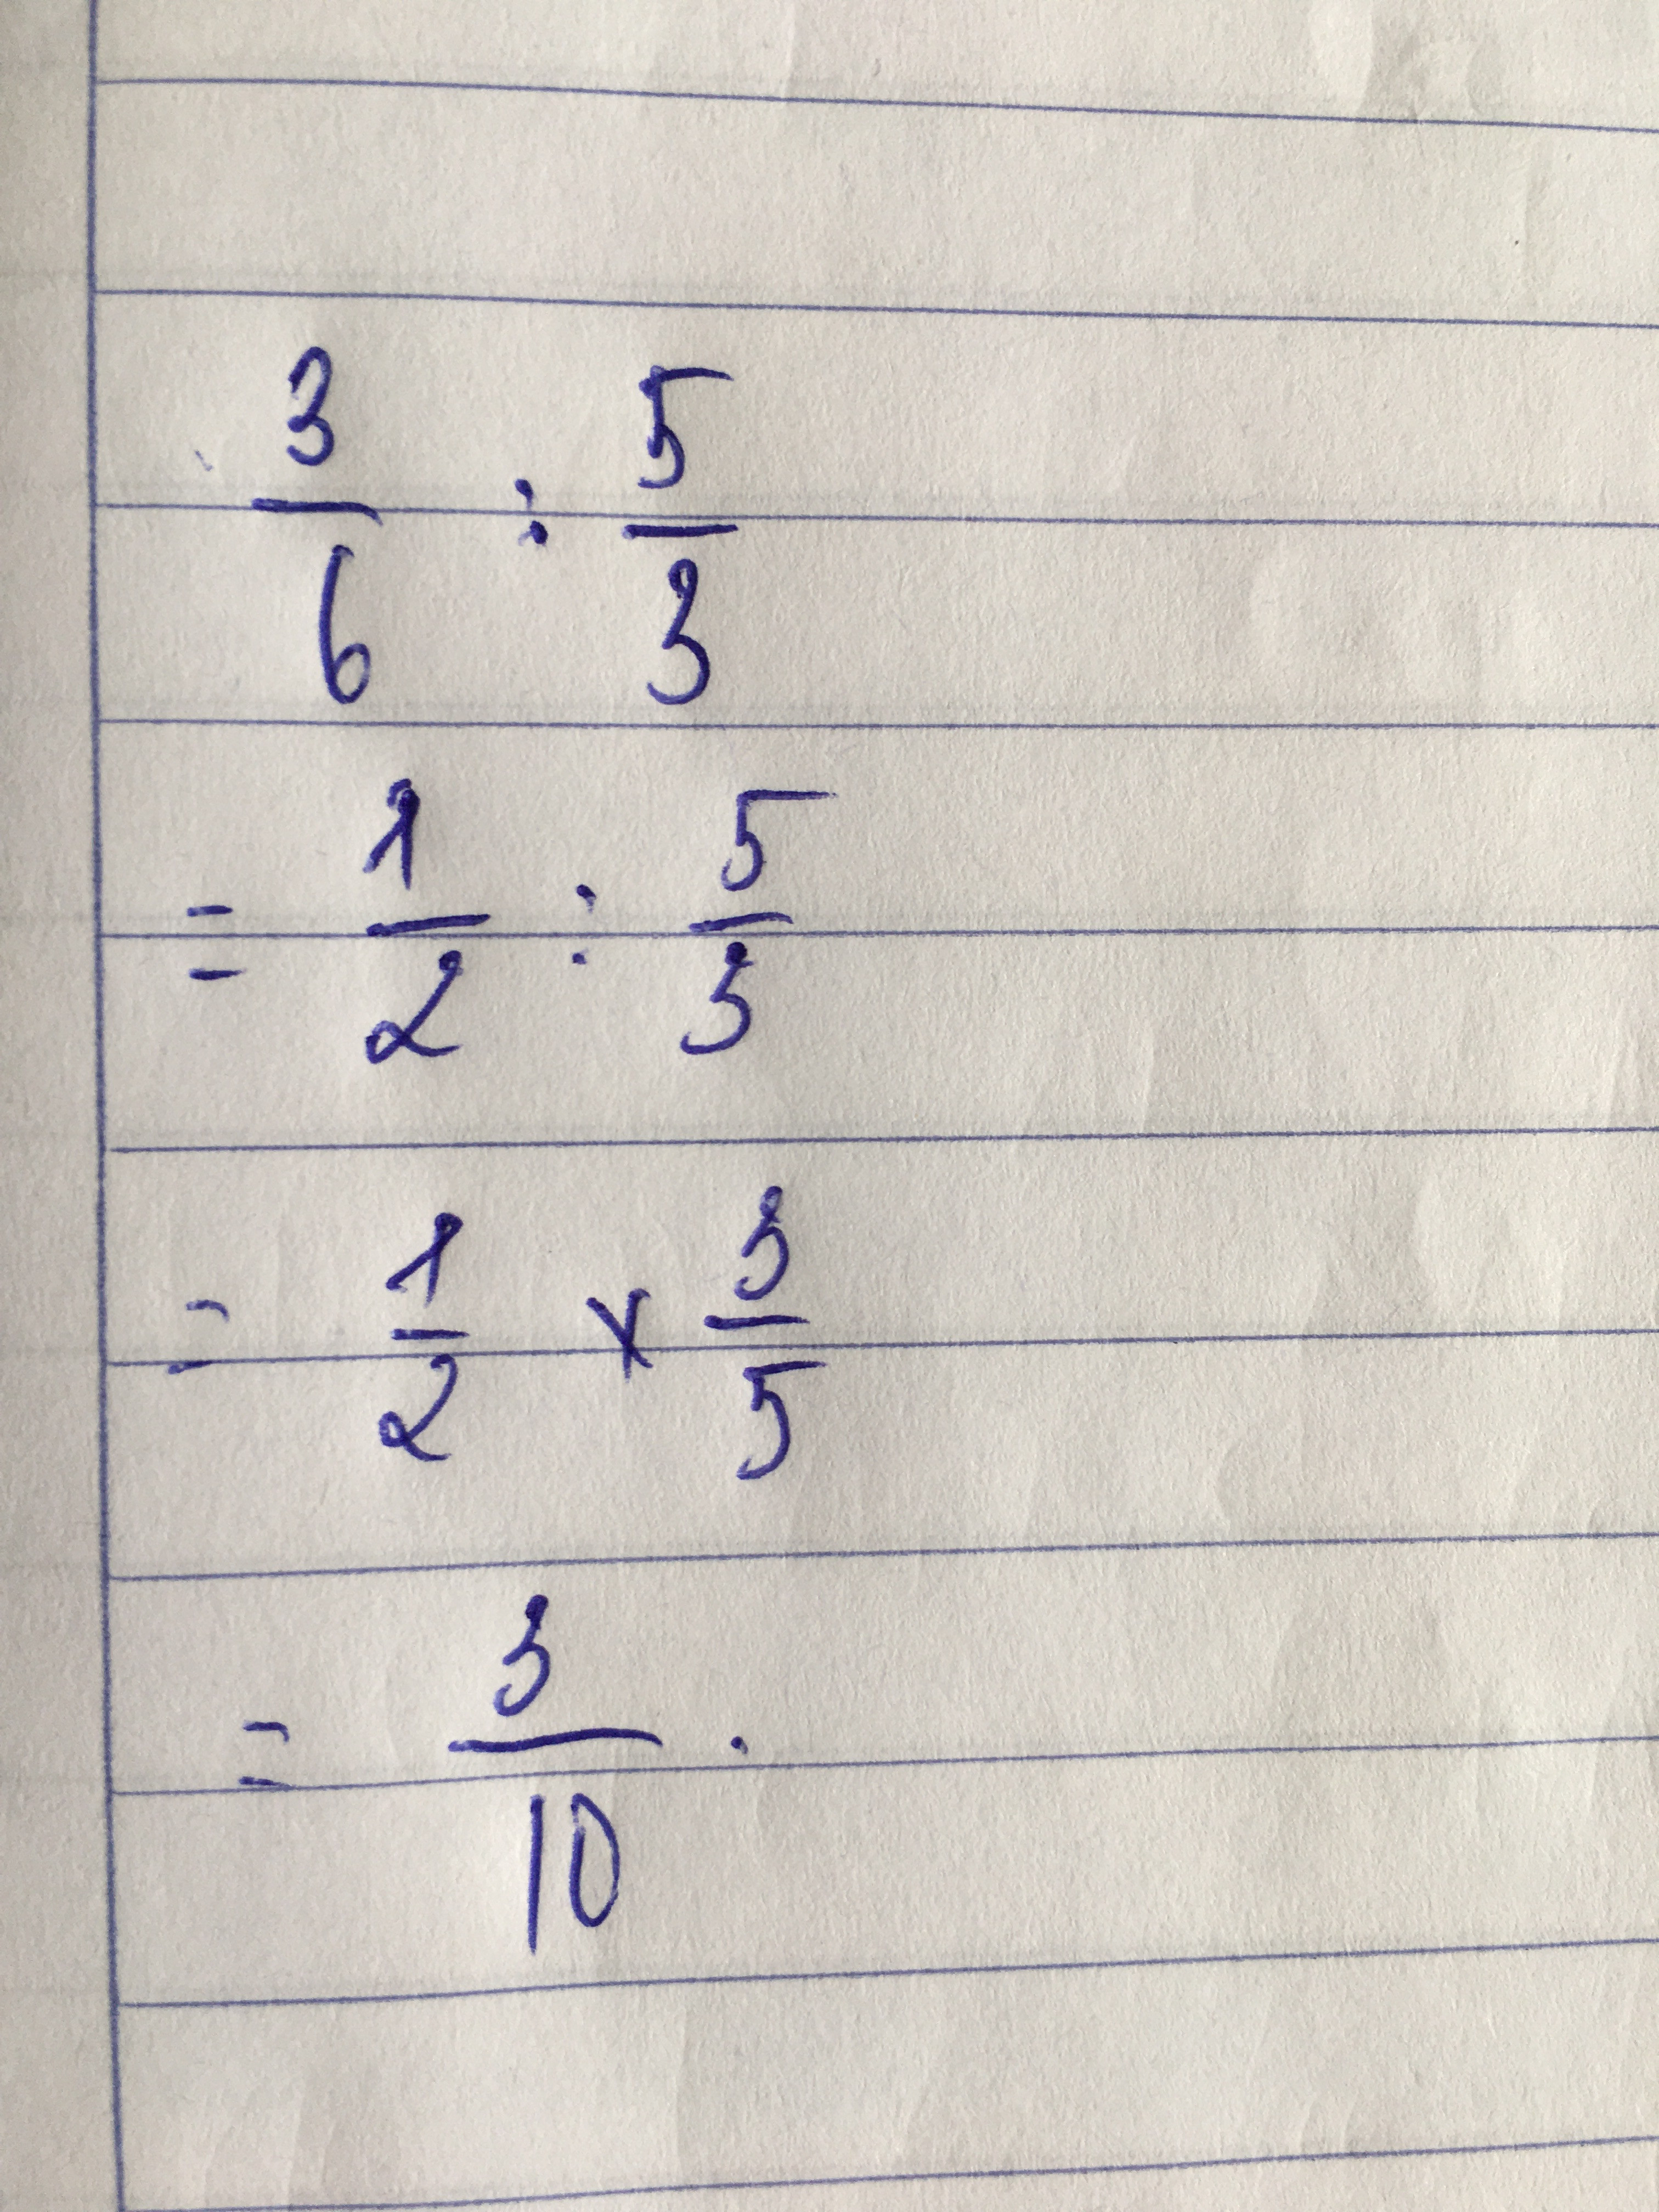 3/6 : 5/3
= 1/2 : 5/3
= 1/2 × 3/5
= 3/10 .